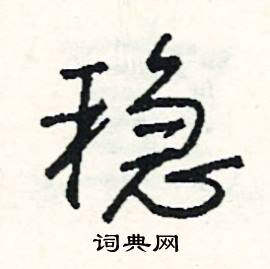 稳
词典网